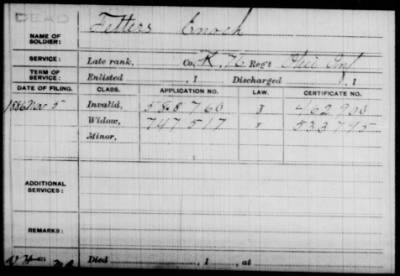 DEAD
NAME OF SOLDIER: Fetters Enoch
SERVICE: Late rank, Co. K, 76 Reg't Ohio Inf
TERM OF SERVICE: Enlisted , 1 Discharged , 1
DATE OF FILING. CLASS. APPLICATION NO. LAW. CERTIFICATE NO.
1886 Nov 5 Invalid, 588760 462900
Widow, 747517 533745
Minor,
ADDITIONAL SERVICES:
REMARKS:
Died , 1 , at